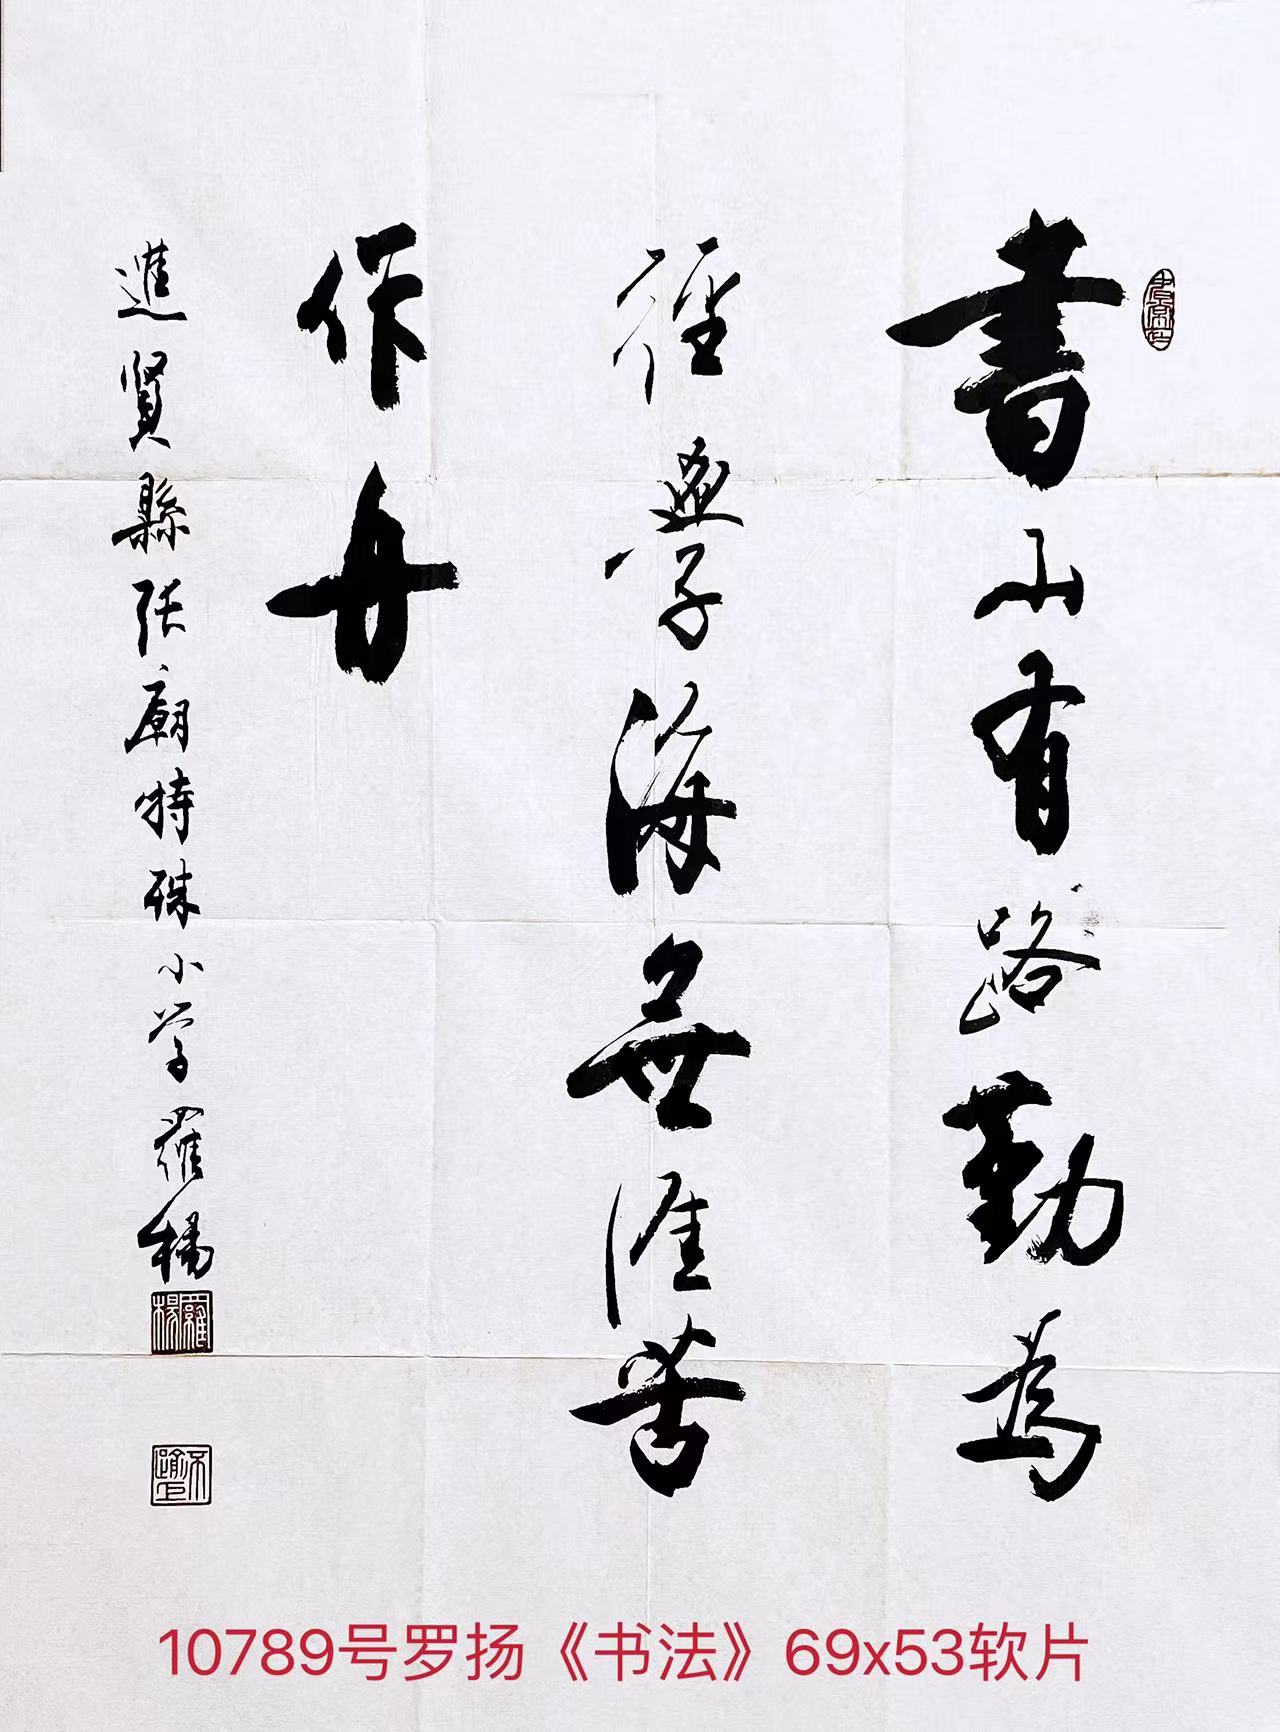 書山有路勤為
徑學海無涯苦
作舟
進賢縣张廟特殊小学羅楊
羅楊
10789号罗扬《书法》69x53软片